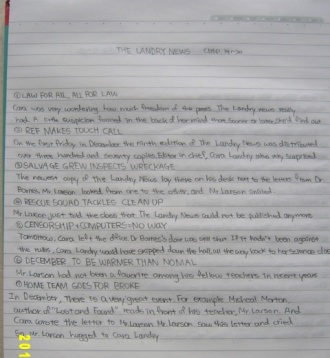 THE LANDRY NEWS Ch
① LAW FOR ALL, ALL FOR LAW
Cara was very wondering how much freedom of the press The Landry news really
had. A little suspicion formed in the back of her mind that sooner or later, she'd find out.
② REF MAKES TOUCH CALL
On the first friday in December the ninth edition of The Landry News was distributed
over three hundred and seventy copies. Editor in chief, Cara Landry was very surprised
③ SALVAGE CREW INSPECTS WRECKAGE
The newest copy of The Landry News lay there on his desk next to the letter from Dr.
Barnes. Mr. Larson looked from one to the other, and Mr. Larson
④ RESCUE SQUAD TACKLES CLEAN UP
Mr. Larson just told the class that The Landry News could not be published anymore
⑤ CENSORSHIP+COMPUTERS=NO WAY
Tomorrow, Cara left the office. Dr. Barnes's door was shut. If it hadn't been against
the rules, Cara Landry would have skipped down the hall, all the way back to her science class
⑥ DECEMBER TO BE WARMER THAN NOMAL
Mr. Larson had not been a favorite among his fellow teachers in recent years
⑦ HOME TEAM GOES FOR BROKE
In December, There is a very great event. For example Micheal Morton,
author of "Lost and Found" reads in front of his teacher, Mr. Larson. And
Cara wrote the letter to Mr. Larson. Mr. Larson saw this letter and cried
So Mr. Larson hugged to Cara Landry
201